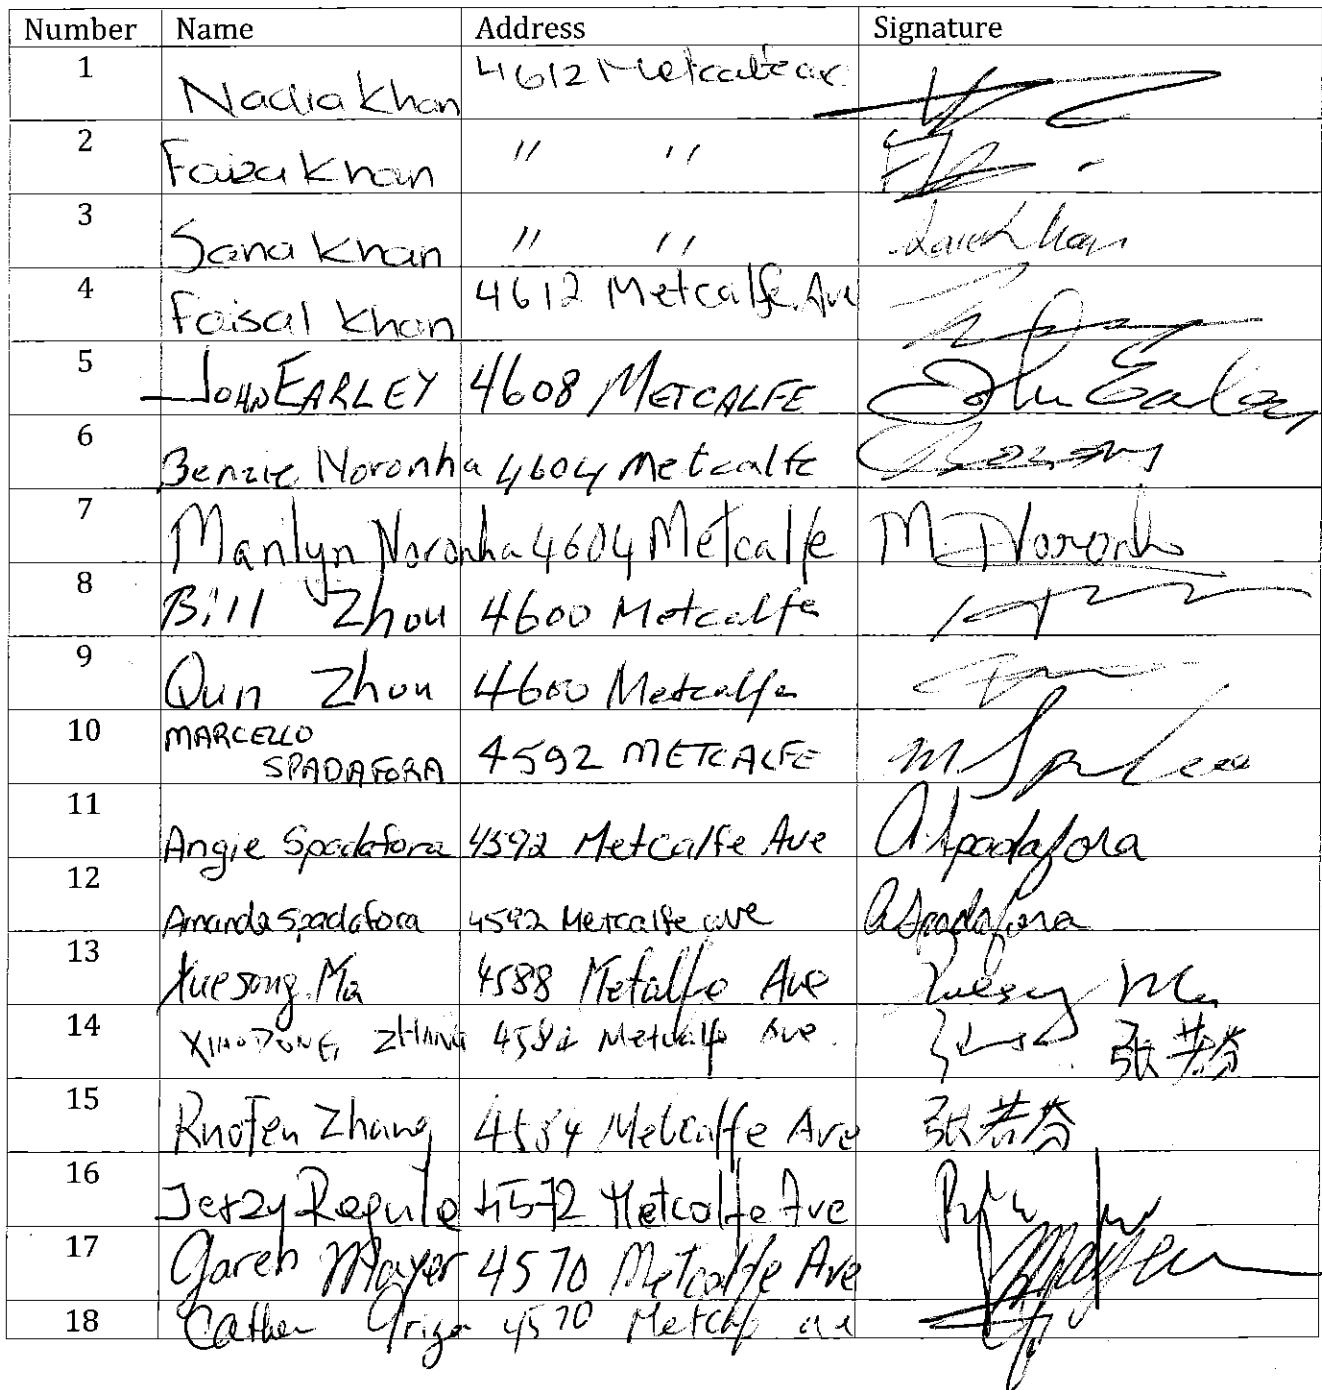 Number Name Address Signature
1 Nadia Khan 4612 Metcalfe
2 Faiza Khan " "
3 Sana Khan " " Sana Khan
4 Faisal Khan 4612 Metcalfe Ave
5 JOHN EARLEY 4608 METCALFE John Earley
6 Benzie Noronha 4604 Metcalfe
7 Marilyn Noronha 4604 Metcalfe M Noronha
8 Bill Zhou 4600 Metcalfe
9 Qun Zhou 4600 Metcalfe
10 MARCELLO
SPADAFORA 4592 METCALFE
11 Angie Spadafora 4592 Metcalfe Ave A Spadafora
12 Amanda Spadafora 4592 Metcalfe ave A Spadafora
13 Xuesong Ma 4588 Metalfe Ave Xuesong Ma
14 XIAODONG ZHANG 4584 Metcalf Ave. 张若芬
15 Ruofen Zhang 4584 Metcalfe Ave 张若芬
16 Jerzy Regula 4572 Metcalfe Ave
17 Gareh Mayer 4570 Metcalfe Ave
18 4570